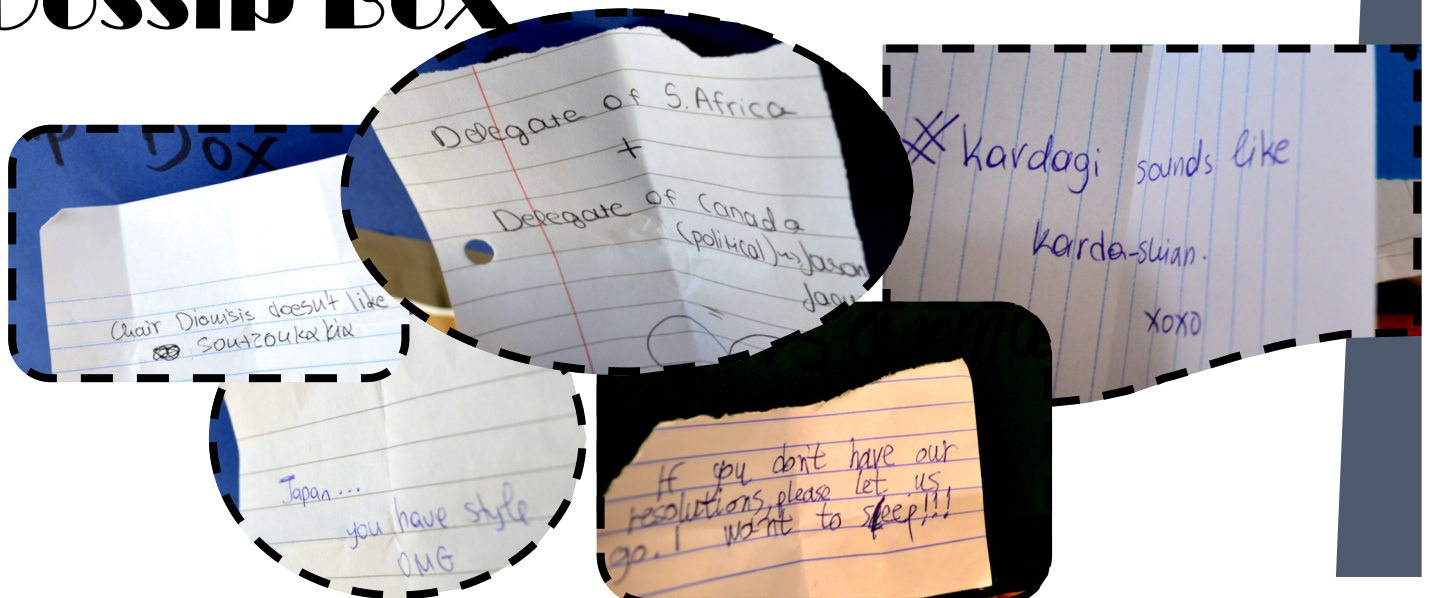 Gossip Box
P Box
Chair Dionisis doesn't like
soutzoukakia
Delegate of S. Africa
+
Delegate of Canada
(political) Jason
Kardagi sounds like
karda-shian.
xoxo
Japan...
you have style
OMG
If you don't have our
resolutions, please let us
go. I want to sleep!!!